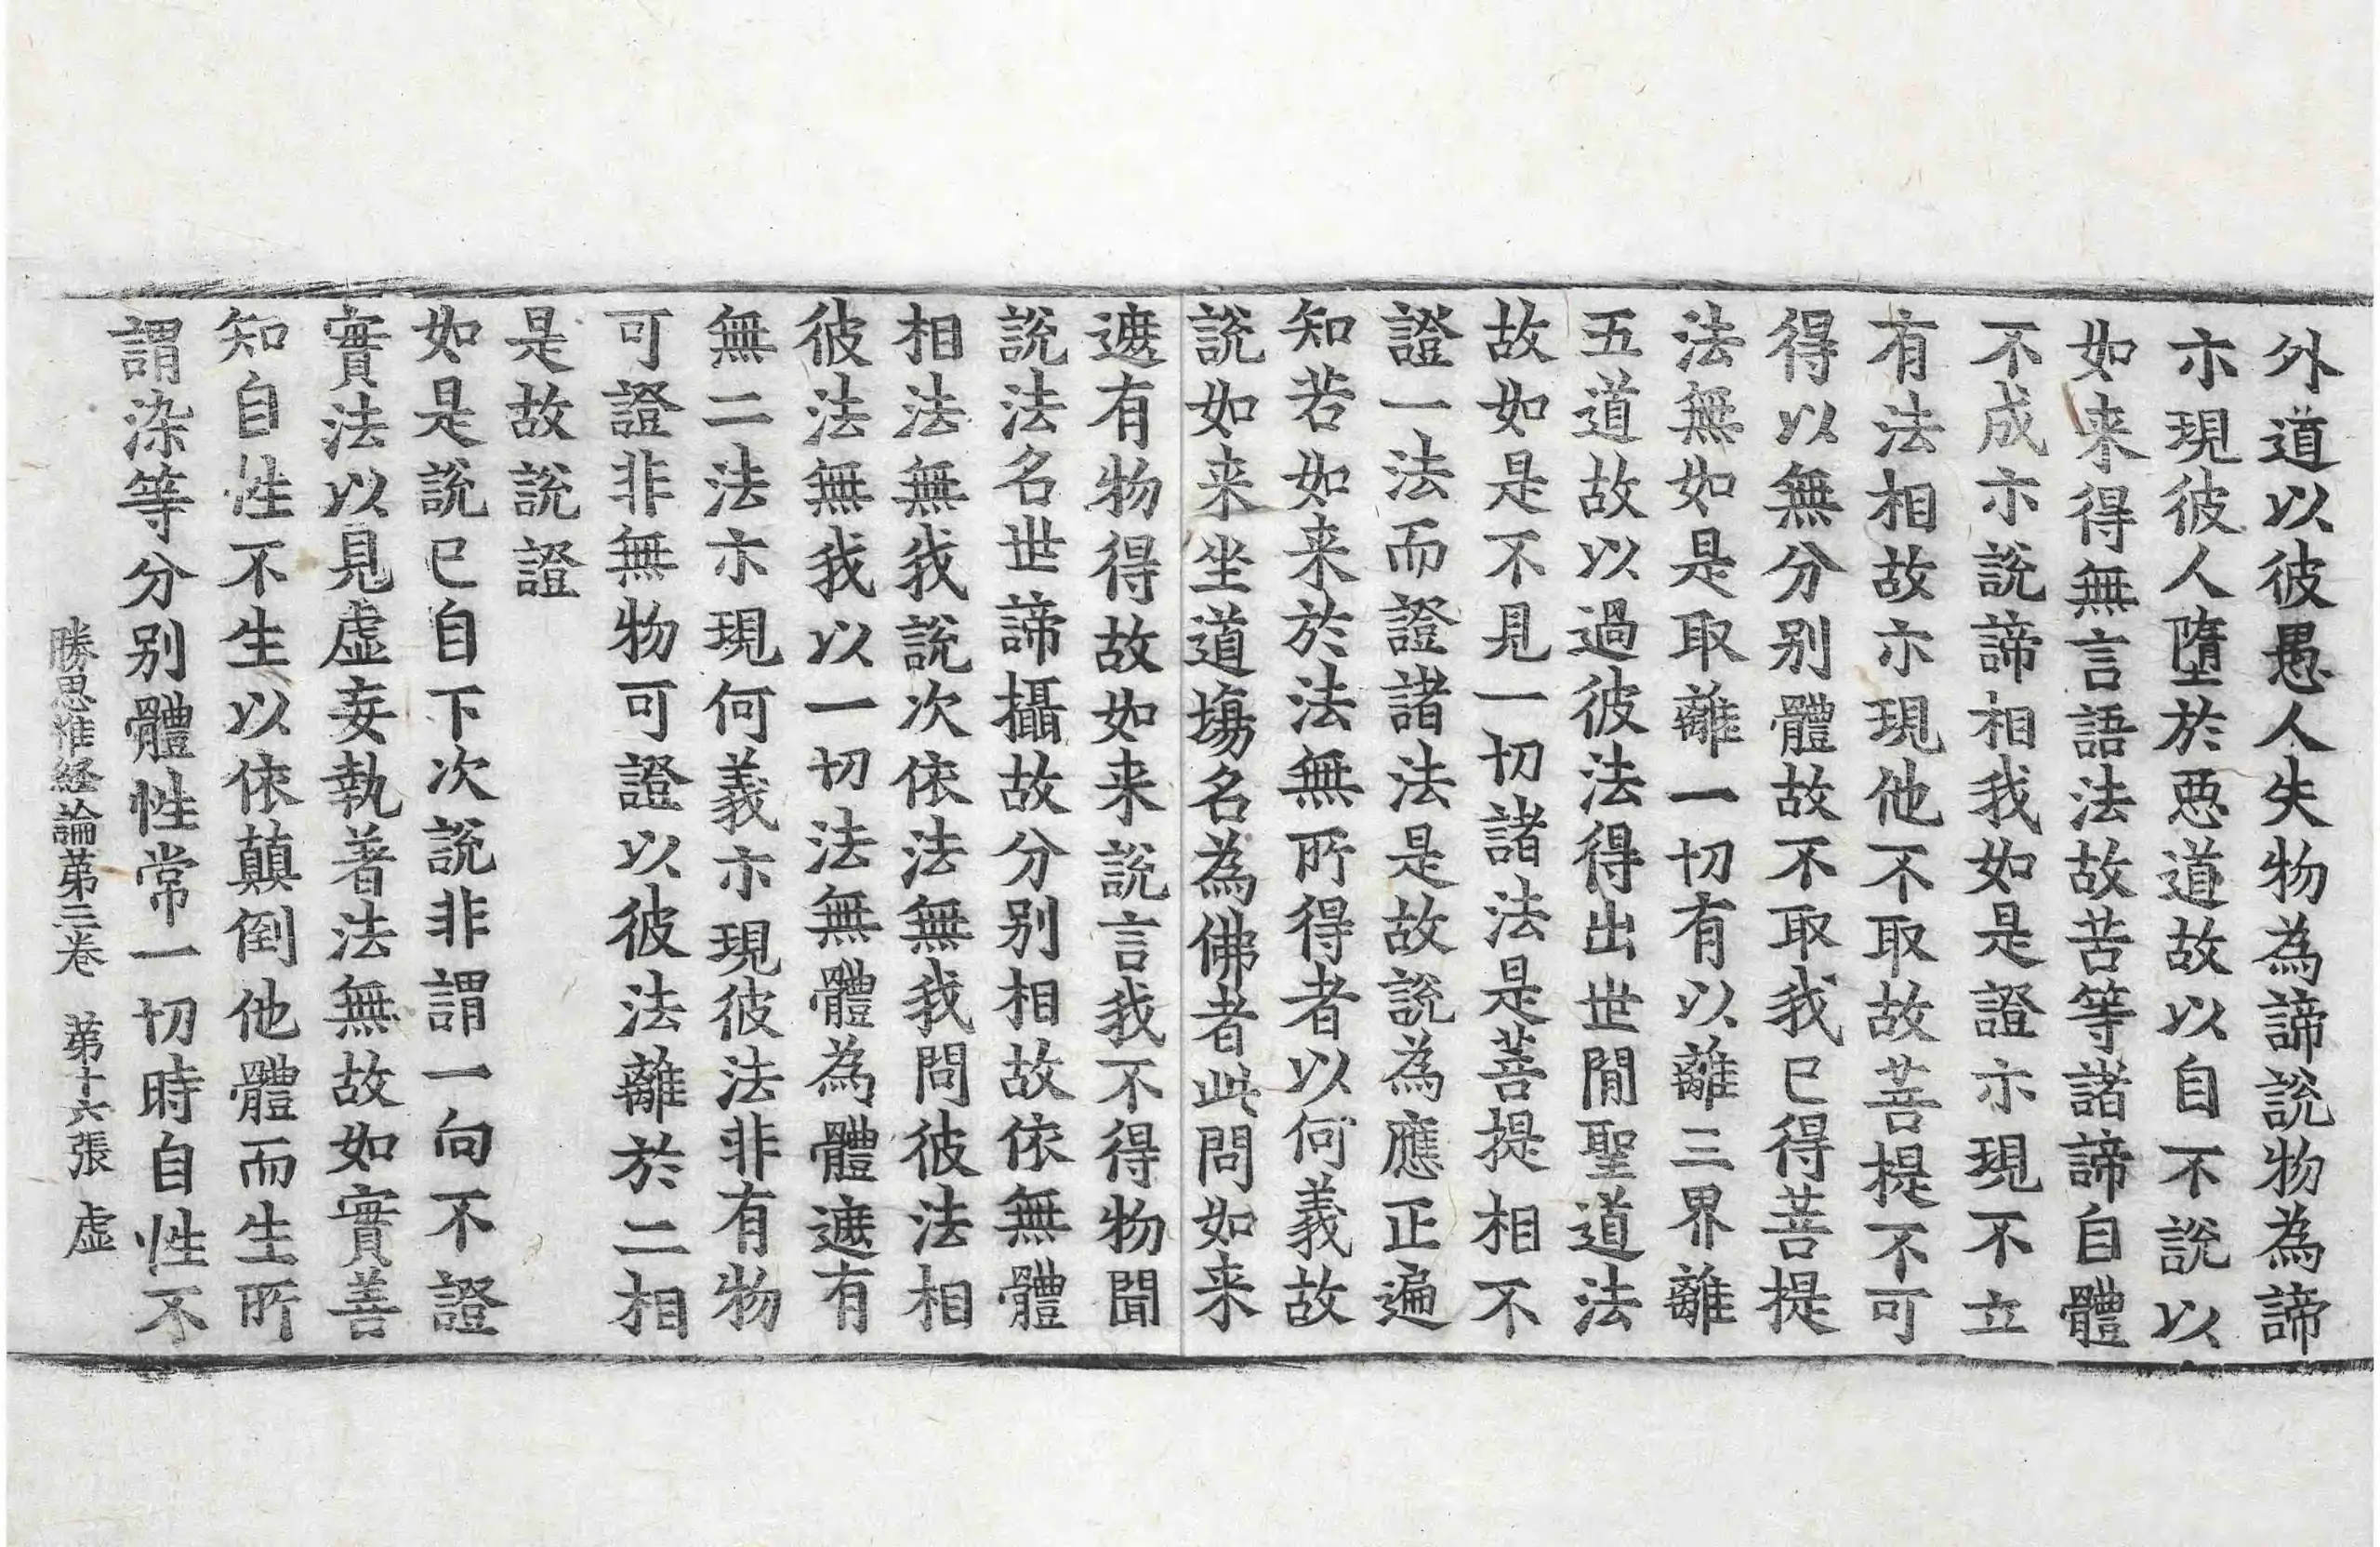 外道以彼愚人失物為諦說物為諦
亦現彼人墮於惡道故以自不說以
如来得無言語法故苦等諸諦自體
不成亦說諦相我如是證亦現不立
有法相故亦現他不取故菩提不可
得以無分別體故不取我已得菩提
法無如是取離一切有以離三界離
五道故以過彼法得出世間聖道法
故如是不見一切諸法是菩提相不
證一法而證諸法是故說為應正遍
知若如来於法無所得者以何義故
說如来坐道場名為佛者此問如来
遮有物得故如来說言我不得物聞
說法名世諦攝故分別相故依無體
相法無我說次依法無我問彼法相
彼法無我以一切法無體為體遮有
無二法亦現何義亦現彼法非有物
可證非無物可證以彼法離於二相
是故說證
如是說已自下次說非謂一向不證
實法以見虛妄執著法無故如實善
知自性不生以依顛倒他體而生所
謂染等分別體性常一切時自性不
勝思惟経論第三卷　第十六張　虛